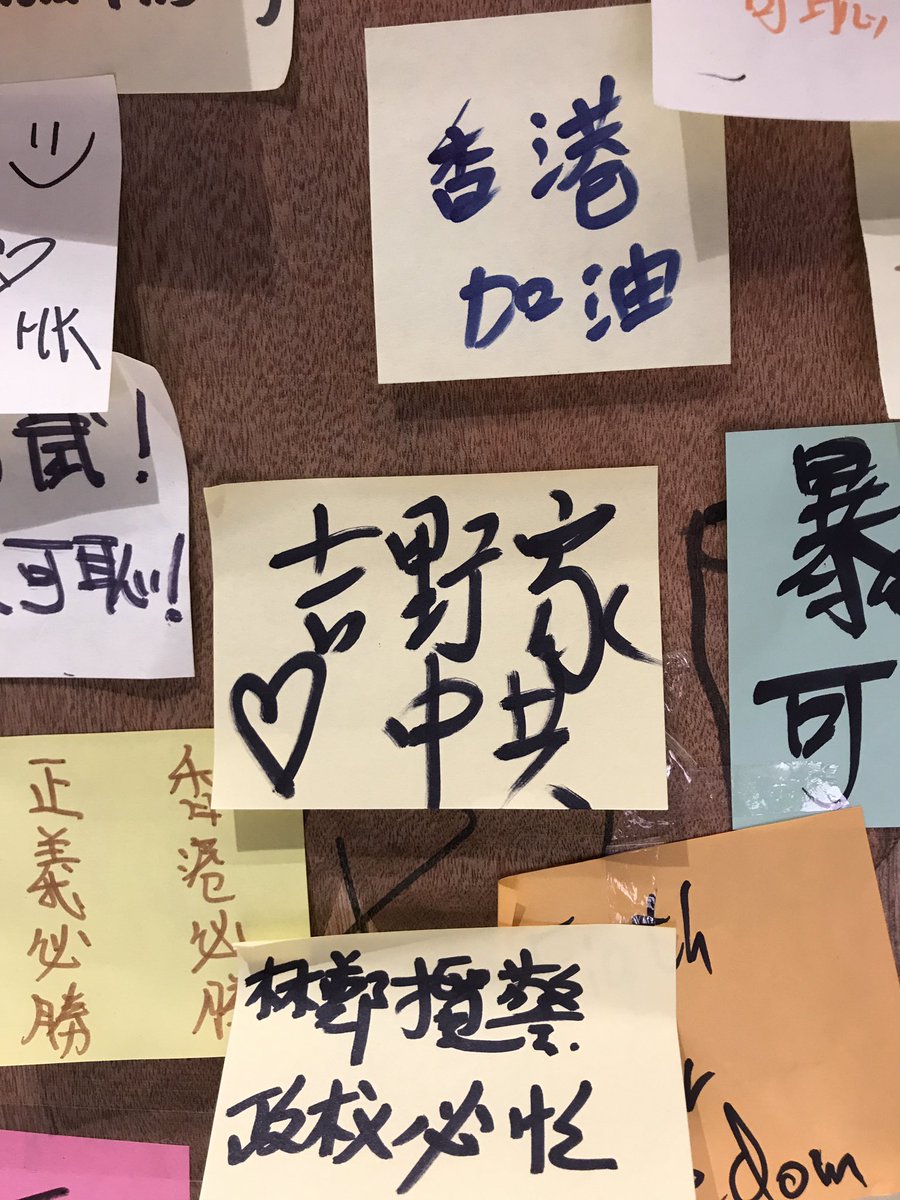 香港
加油
HK
可恥!
吉野家
♡中共
暴
可
香港必勝
正義必勝
林鄭攬警
政权必